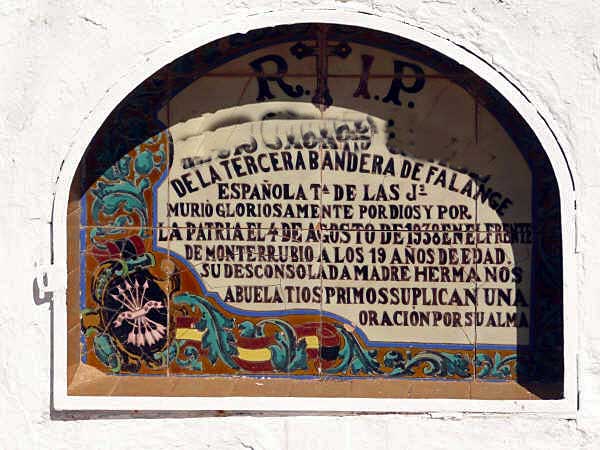 R. I. P.
DE LA TERCERA BANDERA DE FALANGE
ESPAÑOLA Tª DE LAS Jª
MURIÓ GLORIOSAMENTE POR DIOS Y POR
LA PATRIA EL 4 DE AGOSTO DE 1938 EN EL FRENTE
DE MONTERRUBIO A LOS 19 AÑOS DE EDAD.
SU DESCONSOLADA MADRE HERMANOS
ABUELA TIOS PRIMOS SUPLICAN UNA
ORACIÓN POR SU ALMA